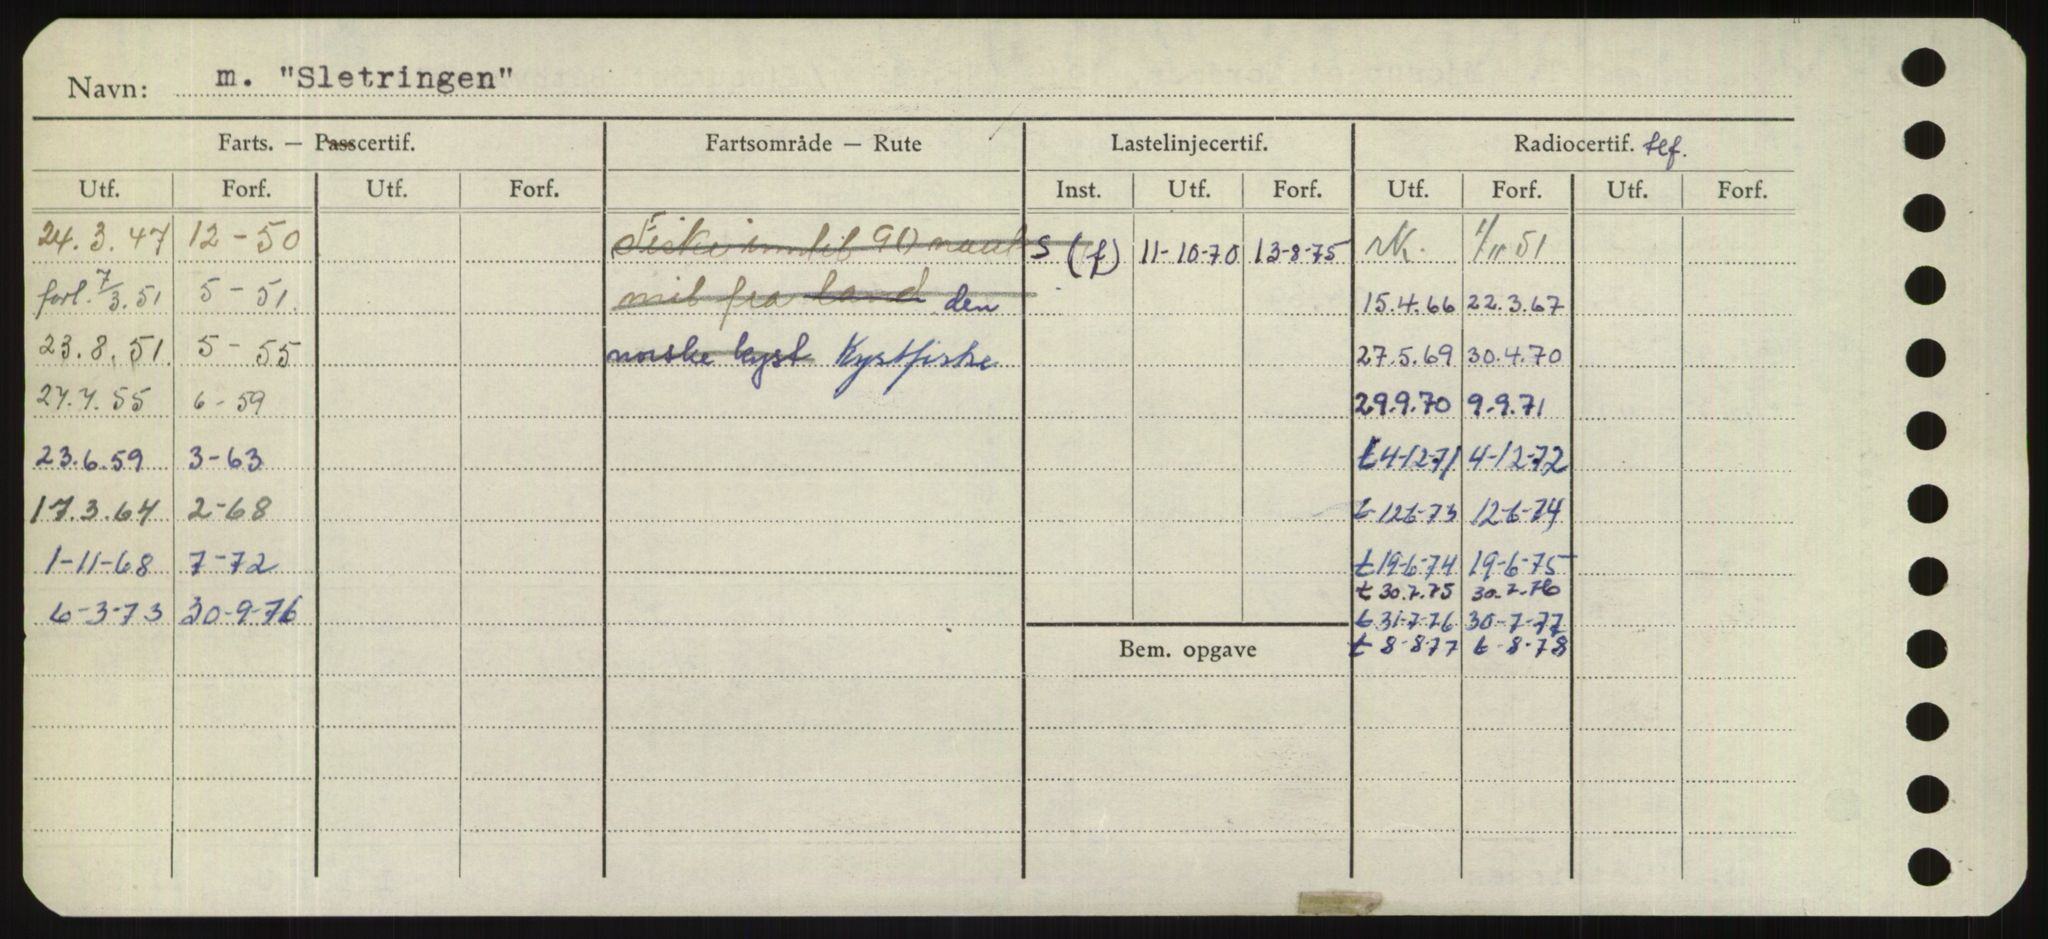 Navn: m. "Sletringen"
Farts. — Passcertif. Fartsområde — Rute Lastelinjecertif. Radiocertif. tlf.
Utf. Forf. Utf. Forf. Inst. Utf. Forf. Utf. Forf. Utf. Forf.
24.3.47 12-50 Fiske inntil 90 naut S (f) 11-10-70 13-8-75 rK. 1/11 51
forl. 7/3.51 5-51. mil fra land den 15.4.66 22.3.67
23.8.51. 5-55 norske kyst Kystfiske 27.5.69 30.4.70
27.7.55 6-59 29.9.70 9.9.71
23.6.59 3-63 t 4-12-71 4-12-72
17.3.64 2-68 t-126-73 12-6-74
1-11-68 7-72 t 19-6-74 19-6-75
t 30.7.75 30.7.76
6-3-73 30-9-76 t 31-7-76 30-7-77
Bem. opgave t 8-8-77 6-8-78